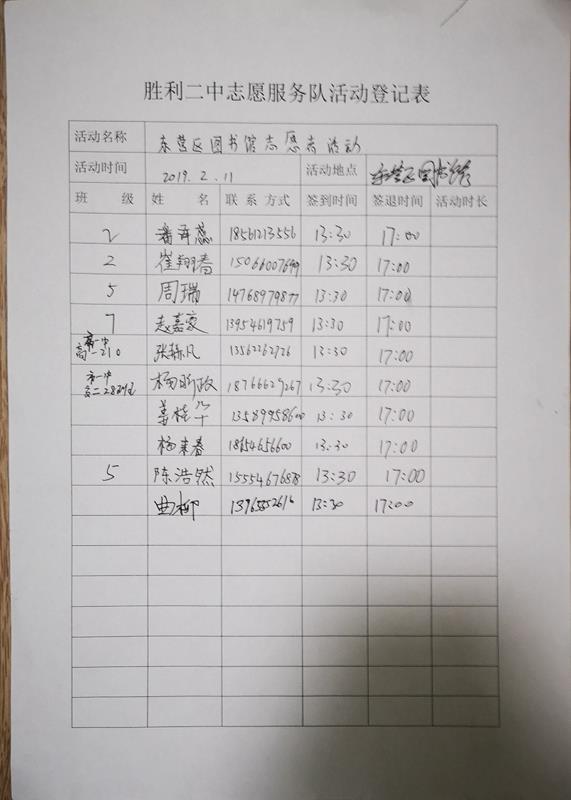 胜利二中志愿服务队活动登记表
活动名称 东营区图书馆志愿者活动
活动时间 2019.2.11 活动地点 东营区图书馆
班 级 姓 名 联系方式 签到时间 签退时间 活动时长
2 潘 蕊 18561213556 13:30 17:00
2 崔翔 13:30 17:00
5 周瑞 13:30 17:00
7 赵嘉豪 13954619759 13:30 17:00
高一210 张 凡 13562262726 13:30 17:00
杨昕政 18766629267 13:30 17:00
姜桂华 13589958600 13:30 17:00
杨来春 18654656600 13:30 17:00
5 陈浩然 15554676878 13:30 17:00
曲柳 13:30 17:00